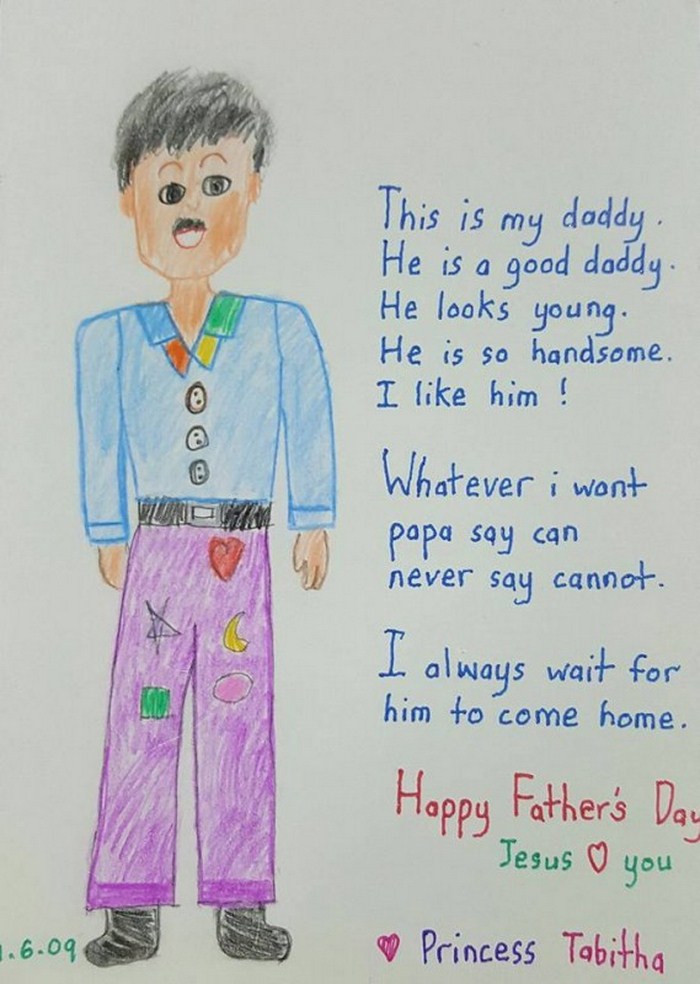 This is my daddy.
He is a good daddy.
He looks young.
He is so handsome.
I like him !
Whatever i want
papa say can
never say cannot.
I always wait for
him to come home.
Happy Father's Day
Jesus ♡ you
.6.09
♥ Princess Tabitha